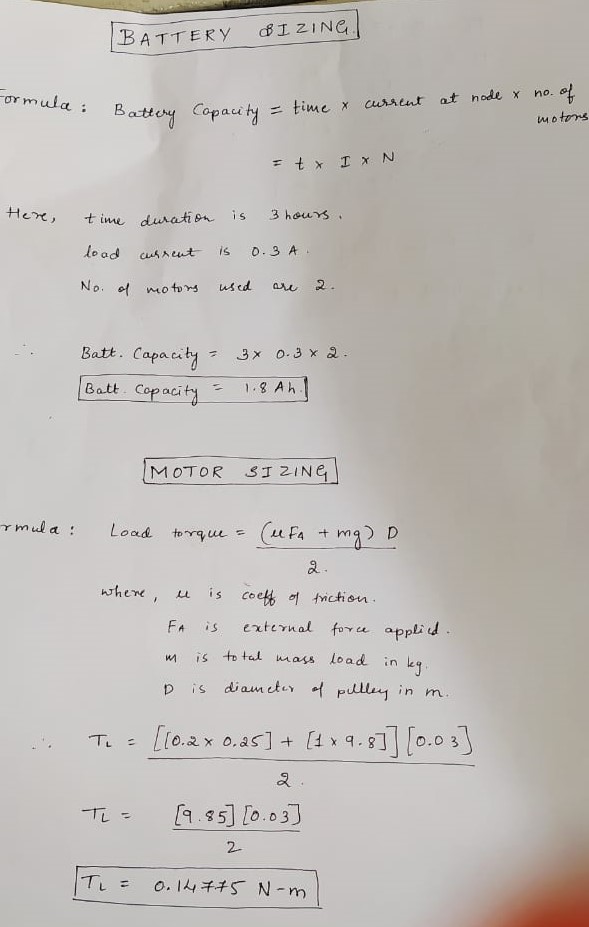 BATTERY SIZING.
Formula : Battery Capacity = time x current at node x no. of motors
= t x I x N
Here, time duration is 3 hours.
load current is 0.3 A.
No. of motors used are 2.
∴ Batt. Capacity = 3 x 0.3 x 2.
Batt. Capacity = 1.8 Ah.
MOTOR SIZING
rmula : Load torque = (μFA + mg) D
2.
where, μ is coeff of friction.
FA is external force applied.
m is total mass load in kg.
D is diameter of pulley in m.
∴ TL = [[0.2 x 0.25] + [1 x 9.8]] [0.03]
2.
TL = [9.85] [0.03]
2
TL = 0.14775 N-m